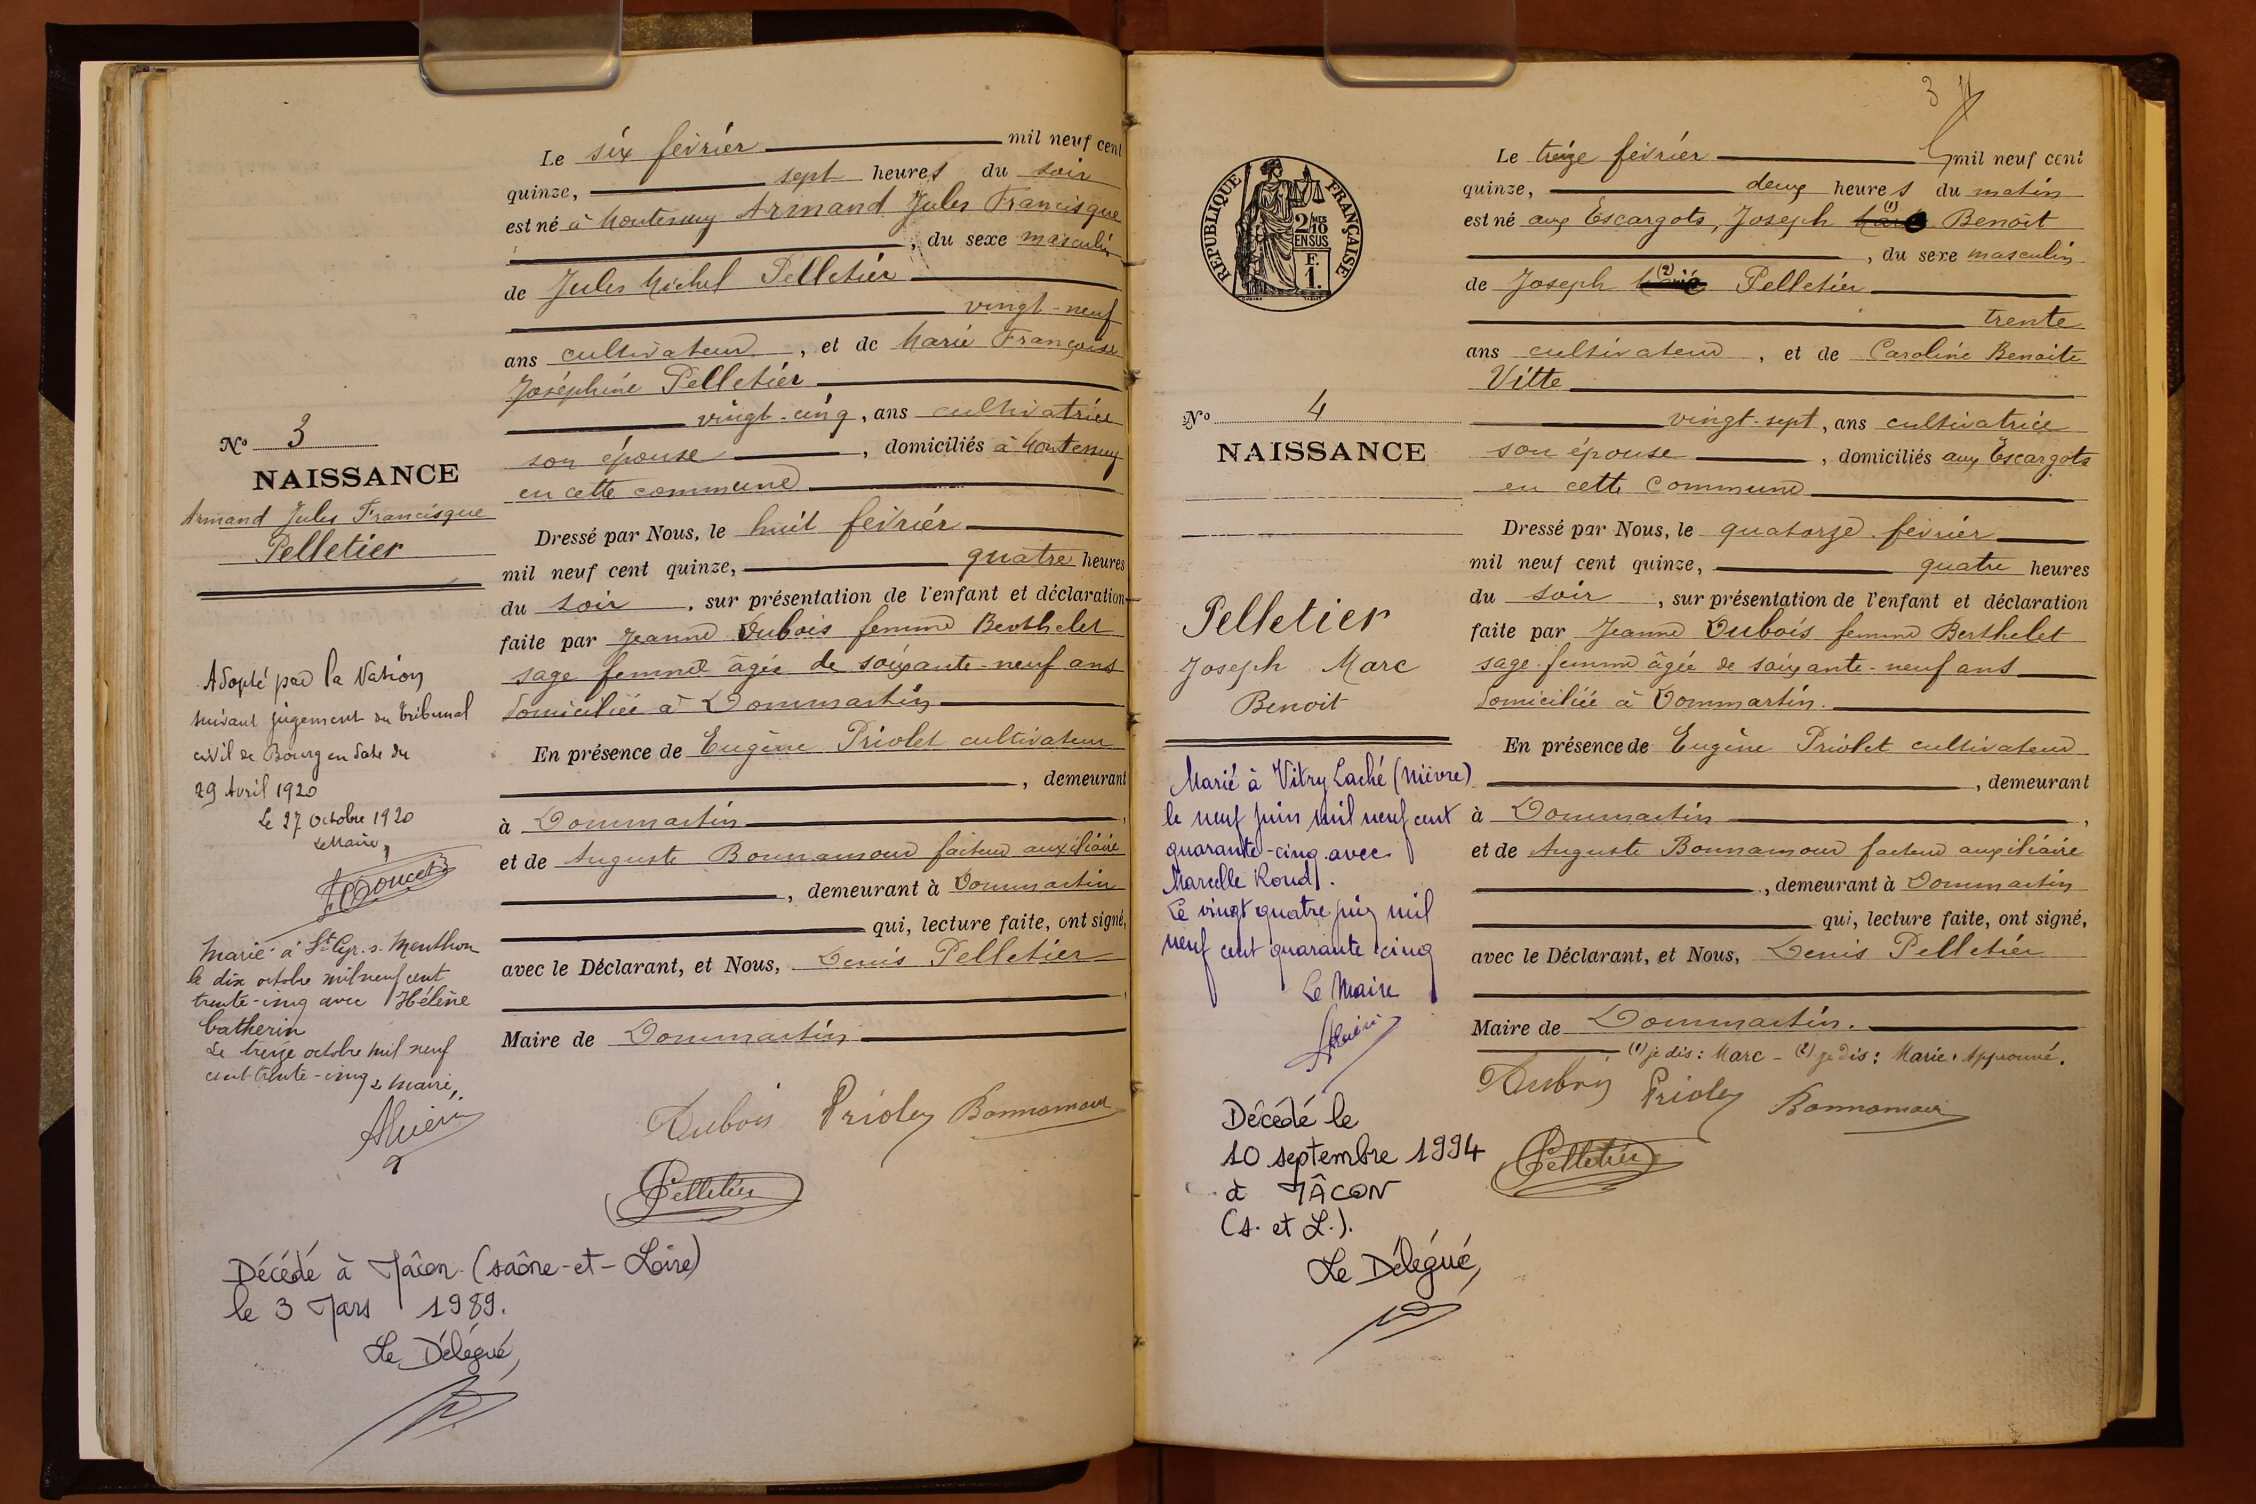 Le six février mil neuf cent
quinze, sept heures du soir
est né à Montemuy Armand Jules Francisque
, du sexe masculin
de Jules Michel Pelletier
vingt-neuf
ans cultivateur, et de Marie Françoise
Joséphine Pelletier
vingt-cinq, ans cultivatrice
son épouse, domiciliés à Montemuy
en cette commune
Dressé par Nous, le huit février
mil neuf cent quinze, quatre heures
du soir, sur présentation de l'enfant et déclaration
faite par Jeanne Dubois femme Berthelet
sage femme âgée de soixante-neuf ans
domiciliée à Dommartin
En présence de Eugène Priolet cultivateur
, demeurant
à Dommartin,
et de Auguste Bonnamour facteur auxiliaire
, demeurant à Dommartin
qui, lecture faite, ont signé,
avec le Déclarant, et Nous, Denis Pelletier
Maire de Dommartin
Dubois Prioley Bonnamour
Pelletier
No 3
NAISSANCE
Armand Jules Francisque
Pelletier
Adopté par la Nation
suivant jugement du tribunal
civil de Bourg en date du
29 Avril 1920
Le 27 Octobre 1920
Le Maire,
Marié à St Cyr. s. Menthon
le dix octobre mil neuf cent
trente-cinq avec Hélène
Catherin
Le treize octobre mil neuf
cent trente-cinq Le Maire,
Décédé à Mâcon (Saône-et-Loire)
le 3 Mars 1989.
Le Délégué,
3
RÉPUBLIQUE FRANÇAISE
2/10MES
EN SUS
F.
1.
Le treize février mil neuf cent
quinze, deux heures du matin
est né aux Escargots, Joseph (1) Benoît
, du sexe masculin
de Joseph (2) Pelletier
trente
ans cultivateur, et de Caroline Benoite
Vitte
vingt-sept, ans cultivatrice
son épouse, domiciliés aux Escargots
en cette Commune
Dressé par Nous, le quatorze février
mil neuf cent quinze, quatre heures
du soir, sur présentation de l'enfant et déclaration
faite par Jeanne Dubois femme Berthelet
sage-femme âgée de soixante-neuf ans
domiciliée à Dommartin.
En présence de Eugène Priolet cultivateur
, demeurant
à Dommartin,
et de Auguste Bonnamour facteur auxiliaire
, demeurant à Dommartin
qui, lecture faite, ont signé,
avec le Déclarant, et Nous, Denis Pelletier
Maire de Dommartin.
(1) je dis: Marc - (2) je dis: Marie. Approuvé.
Dubois Prioley Bonnamour
Pelletier
No 4
NAISSANCE
Pelletier
Joseph Marc
Benoit
Marié à Vitry Laché (Nièvre)
le neuf juin mil neuf cent
quarante-cinq avec
Marcelle Roud.
Le vingt quatre juin mil
neuf cent quarante cinq
Le Maire
Décédé le
10 septembre 1994
à MÂCON
(S. et L.).
Le Délégué,